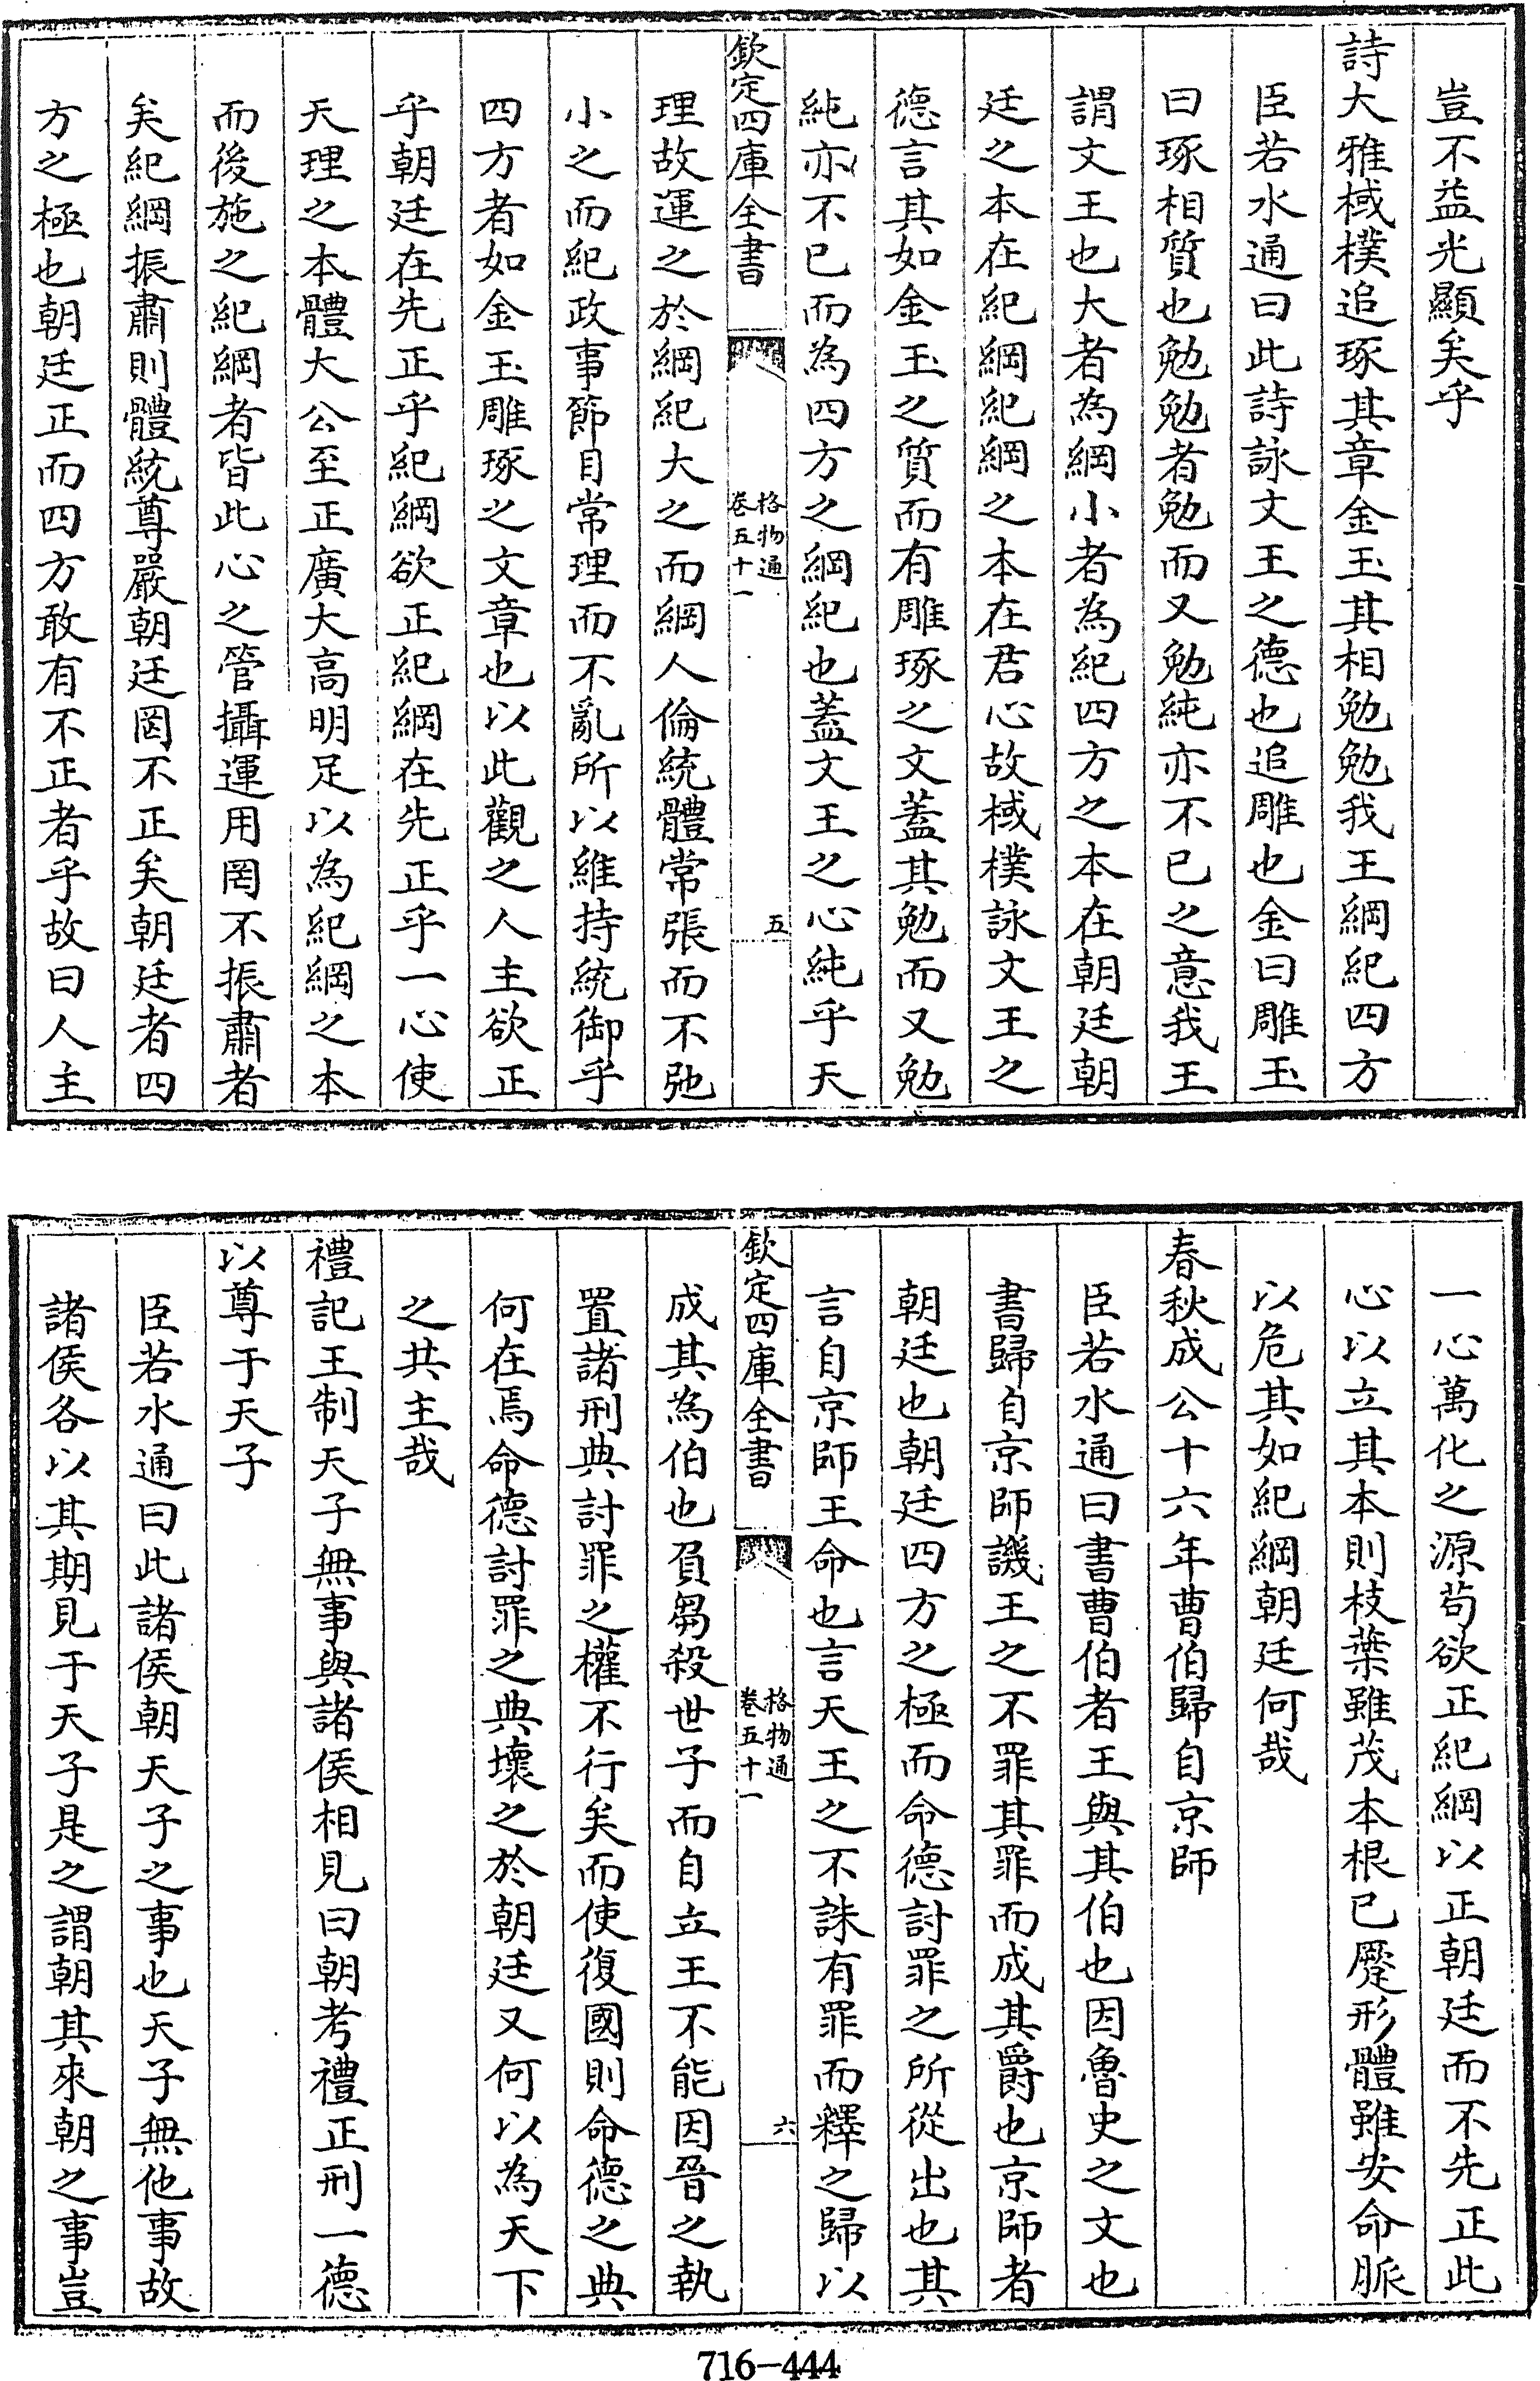 豈不益光顯矣乎
詩大雅棫樸追琢其章金玉其相勉勉我王綱紀四方
臣若水通曰此詩詠文王之德也追雕也金曰雕玉
曰琢相質也勉勉者勉而又勉純亦不已之意我王
謂文王也大者為綱小者為紀四方之本在朝廷朝
廷之本在紀綱紀綱之本在君心故棫樸詠文王之
德言其如金玉之質而有雕琢之文蓋其勉而又勉
純亦不已而為四方之綱紀也蓋文王之心純乎天
欽定四庫全書
格物通
卷五十一
五
理故運之於綱紀大之而綱人倫統體常張而不弛
小之而紀政事節目常理而不亂所以維持統御乎
四方者如金玉雕琢之文章也以此觀之人主欲正
乎朝廷在先正乎紀綱欲正紀綱在先正乎一心使
天理之本體大公至正廣大高明足以為紀綱之本
而後施之紀綱者皆此心之管攝運用罔不振肅者
矣紀綱振肅則體統尊嚴朝廷罔不正矣朝廷者四
方之極也朝廷正而四方敢有不正者乎故曰人主
一心萬化之源苟欲正紀綱以正朝廷而不先正此
心以立其本則枝葉雖茂本根已蹷形體雖安命脈
以危其如紀綱朝廷何哉
春秋成公十六年曹伯歸自京師
臣若水通曰書曹伯者王與其伯也因魯史之文也
書歸自京師譏王之不罪其罪而成其爵也京師者
朝廷也朝廷四方之極而命德討罪之所從出也其
言自京師王命也言天王之不誅有罪而釋之歸以
欽定四庫全書
格物通
卷五十一
六
成其為伯也負芻殺世子而自立王不能因晉之執
置諸刑典討罪之權不行矣而使復國則命德之典
何在焉命德討罪之典壞之於朝廷又何以為天下
之共主哉
禮記王制天子無事與諸侯相見曰朝考禮正刑一德
以尊于天子
臣若水通曰此諸侯朝天子之事也天子無他事故
諸侯各以其期見于天子是之謂朝其來朝之事豈
716-444